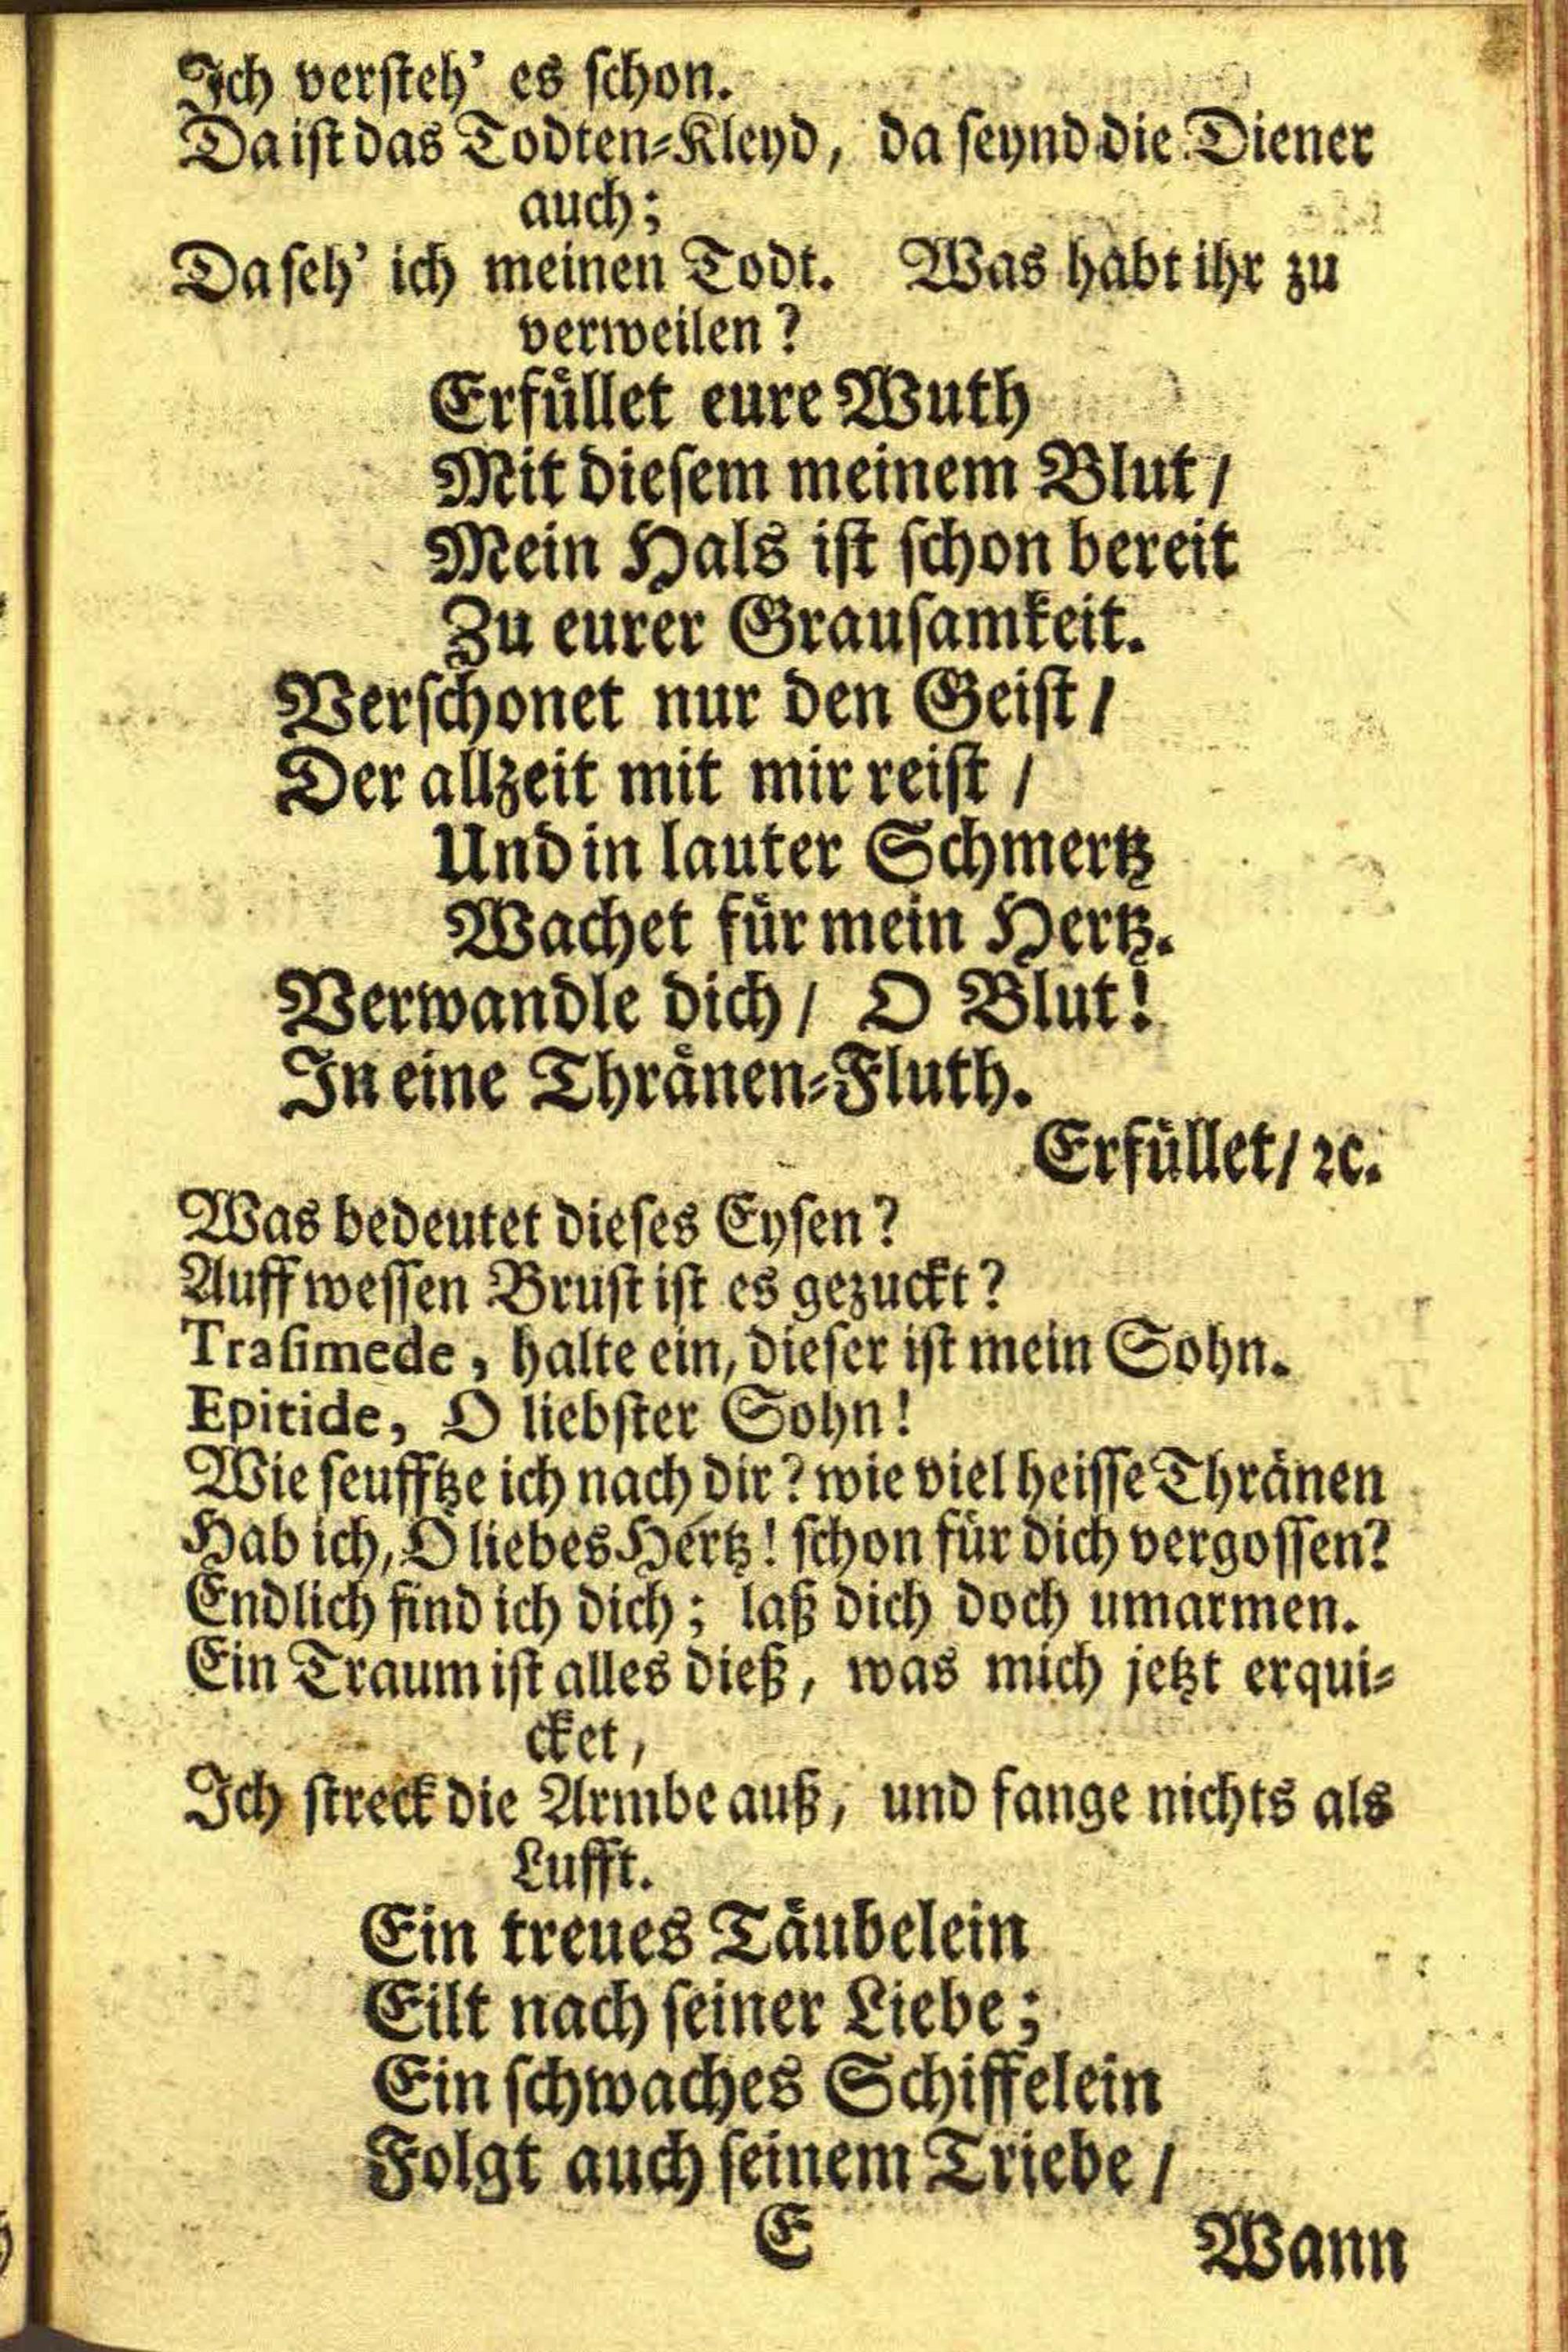 Ich versteh' es schon.
Da ist das Todten-Kleyd, da seynd die Diener
auch;
Da seh' ich meinen Todt. Was habt ihr zu
verweilen?
Erfüllet eure Wuth
Mit diesem meinem Blut /
Mein Hals ist schon bereit
Zu eurer Grausamkeit.
Verschonet nur den Geist /
Der allzeit mit mir reist /
Und in lauter Schmertz
Wachet für mein Hertz.
Verwandle dich / O Blut!
In eine Thränen-Fluth.
Erfüllet / ꝛc.
Was bedeutet dieses Eysen?
Auff wessen Brust ist es gezuckt?
Trasimede, halte ein, dieser ist mein Sohn.
Epitide, O liebster Sohn!
Wie seufftze ich nach dir? wie viel heisse Thränen
Hab ich, O liebes Hertz! schon für dich vergossen?
Endlich find ich dich; laß dich doch umarmen.
Ein Traum ist alles dieß, was mich jetzt erqui-
cket,
Ich streck die Armbe auß, und fange nichts als
Lufft.
Ein treues Täubelein
Eilt nach seiner Liebe;
Ein schwaches Schiffelein
Folgt auch seinem Triebe /
E
Wann